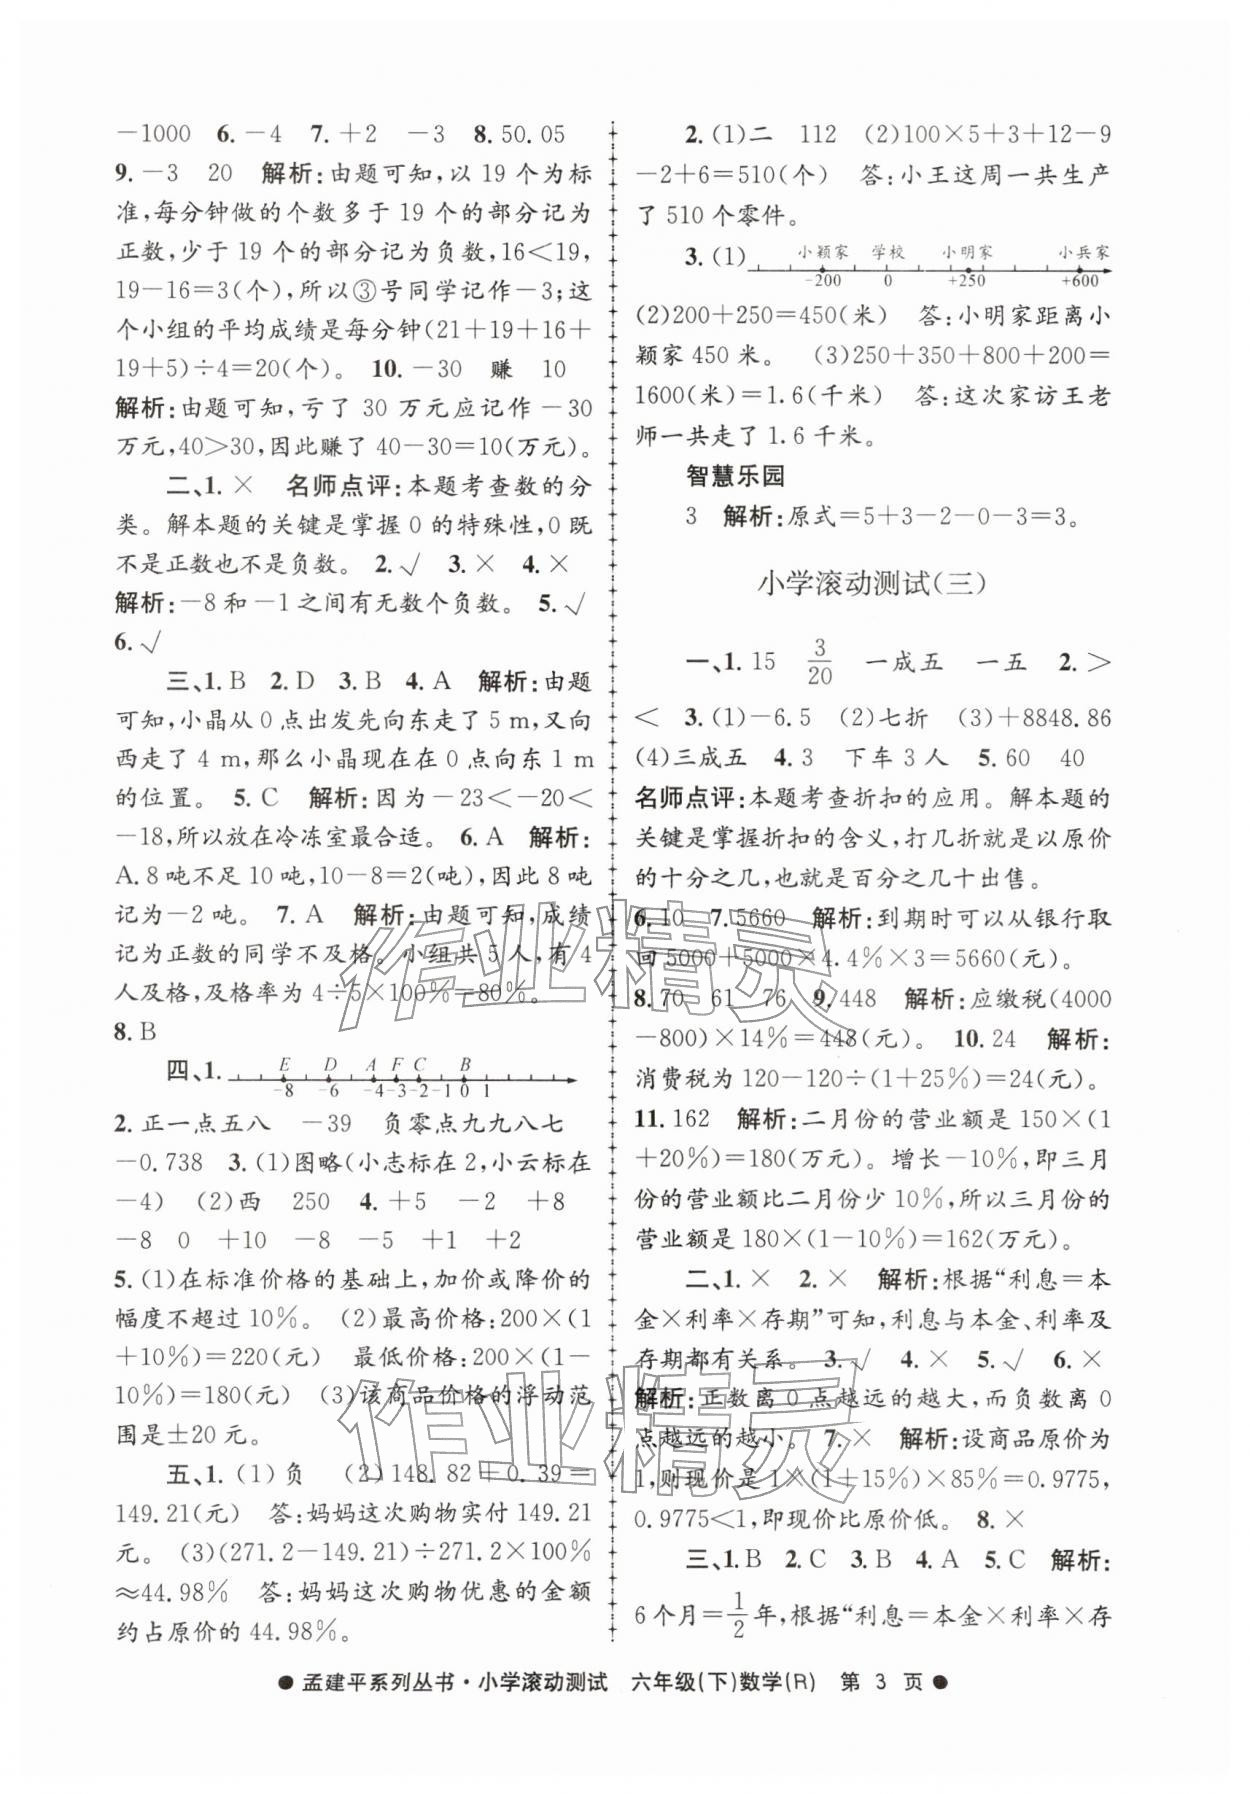 -1000 6. -4 7. +2 -3 8. 50.05
9. -3 20 解析:由题可知,以 19 个为标
准,每分钟做的个数多于 19 个的部分记为
正数,少于 19 个的部分记为负数,16<19,
19-16=3(个),所以③号同学记作-3;这
个小组的平均成绩是每分钟(21+19+16+
19+5)÷4=20(个)。 10. -30 赚 10
解析:由题可知,亏了 30 万元应记作-30
万元,40>30,因此赚了 40-30=10(万元)。
二、1. × 名师点评:本题考查数的分
类。解本题的关键是掌握 0 的特殊性,0 既
不是正数也不是负数。 2. √ 3. × 4. ×
解析:-8 和-1 之间有无数个负数。 5. √
6. √
三、1. B 2. D 3. B 4. A 解析:由题
可知,小晶从 0 点出发先向东走了 5 m,又向
西走了 4 m,那么小晶现在在 0 点向东 1 m
的位置。 5. C 解析:因为-23<-20<
-18,所以放在冷冻室最合适。 6. A 解析:
A. 8 吨不足 10 吨,10-8=2(吨),因此 8 吨
记为-2 吨。 7. A 解析:由题可知,成绩
记为正数的同学不及格。小组共 5 人,有 4
人及格,及格率为 4÷5×100%=80%。
8. B
四、1. E D A F C B
-8 -6 -4 -3 -2 -1 0 1
2. 正一点五八 -39 负零点九九八七
-0.738 3. (1)图略(小志标在 2,小云标在
-4) (2)西 250 4. +5 -2 +8
-8 0 +10 -8 -5 +1 +2
5. (1)在标准价格的基础上,加价或降价的
幅度不超过 10%。 (2)最高价格:200×(1
+10%)=220(元) 最低价格:200×(1-
10%)=180(元) (3)该商品价格的浮动范
围是±20 元。
五、1. (1)负 (2)148.82+0.39=
149.21(元) 答:妈妈这次购物实付 149.21
元。 (3)(271.2-149.21)÷271.2×100%
≈44.98% 答:妈妈这次购物优惠的金额
约占原价的 44.98%。
2. (1)二 112 (2)100×5+3+12-9
-2+6=510(个) 答:小王这周一共生产
了 510 个零件。
3. (1) 小颖家 学校 小明家 小兵家
-200 0 +250 +600
(2)200+250=450(米) 答:小明家距离小
颖家 450 米。 (3)250+350+800+200=
1600(米)=1.6(千米) 答:这次家访王老
师一共走了 1.6 千米。
智慧乐园
3 解析:原式=5+3-2-0-3=3。
小学滚动测试(三)
一、1. 15 3/20 一成五 一五 2. >
< 3. (1)-6.5 (2)七折 (3)+8848.86
(4)三成五 4. 3 下车 3 人 5. 60 40
名师点评:本题考查折扣的应用。解本题的
关键是掌握折扣的含义,打几折就是以原价
的十分之几,也就是百分之几十出售。
6. 10 7. 5660 解析:到期时可以从银行取
回 5000+5000×4.4%×3=5660(元)。
8. 70 61 76 9. 448 解析:应缴税(4000
-800)×14%=448(元)。 10. 24 解析:
消费税为 120-120÷(1+25%)=24(元)。
11. 162 解析:二月份的营业额是 150×(1
+20%)=180(万元)。增长-10%,即三月
份的营业额比二月份少 10%,所以三月份的
营业额是 180×(1-10%)=162(万元)。
二、1. × 2. × 解析:根据“利息=本
金×利率×存期”可知,利息与本金、利率及
存期都有关系。 3. √ 4. × 5. √ 6. ×
解析:正数离 0 点越远的越大,而负数离 0
点越远的越小。 7. × 解析:设商品原价为
1,则现价是 1×(1+15%)×85%=0.9775,
0.9775<1,即现价比原价低。 8. ×
三、1. B 2. C 3. B 4. A 5. C 解析:
6 个月=1/2 年,根据“利息=本金×利率×存
● 孟建平系列丛书·小学滚动测试 六年级(下)数学(R) 第 3 页 ●
作业精灵
作业精灵